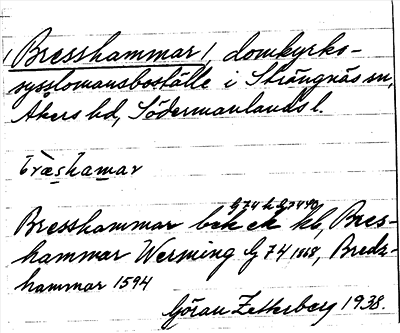 /Bresshammar/, domkyrko-
sysslomansboställe i Strängnäs sn,
Åkers hd, Södermanlands l.
bræshamar
Bresshammar bek ek kb, Bres-
hammar Werming G 74 1668, Bredz-
hammar 1594
Göran Zetterberg 1938.